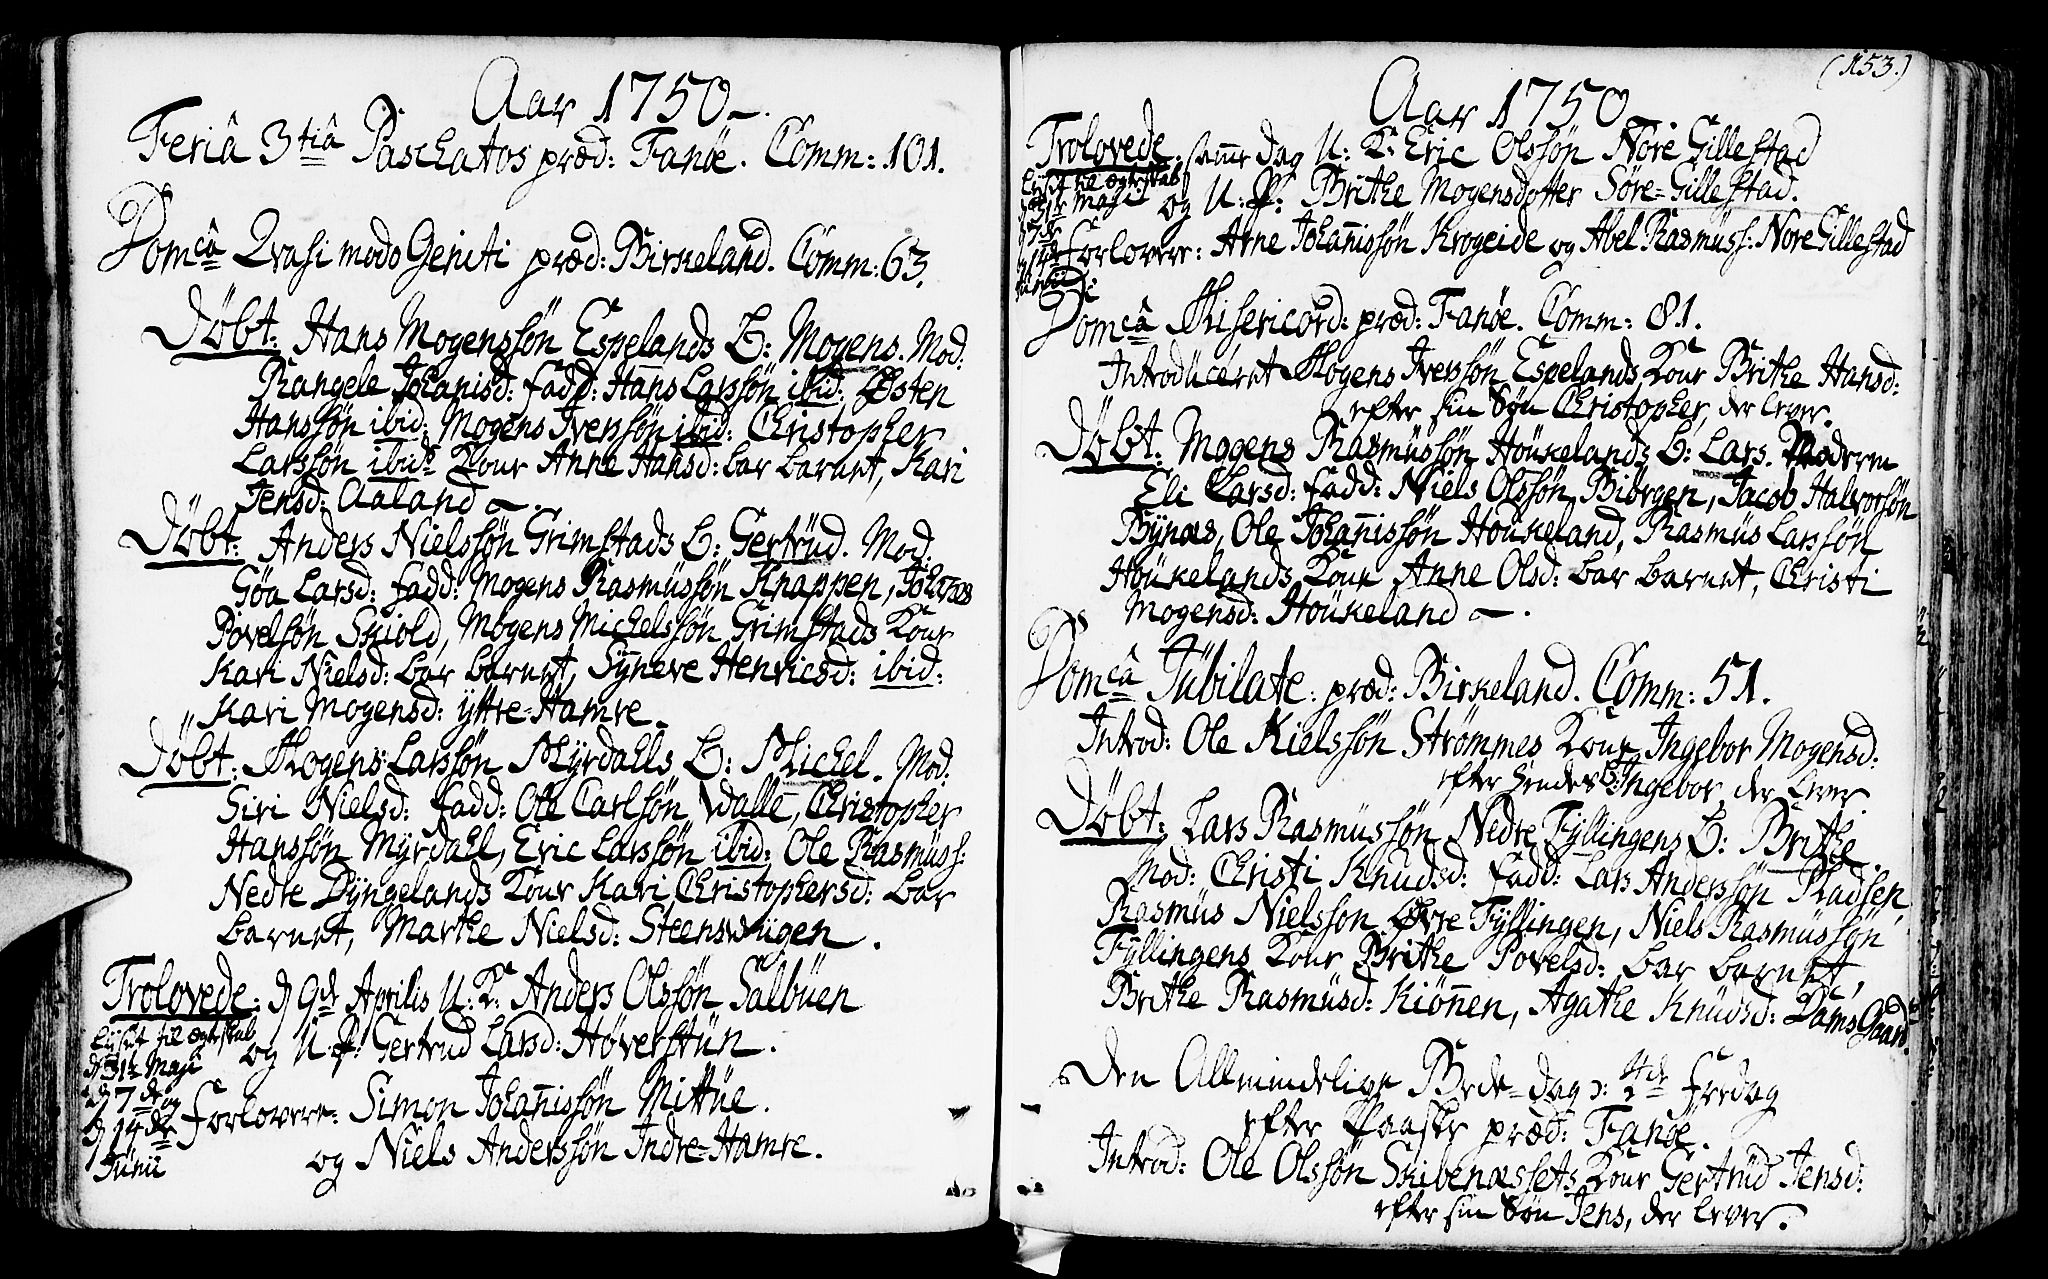 Aar 1750.
Feriâ 3tiâ Paschatos præd: Fanöe. Comm: 101.
Domcâ Qvasi modo Geniti præd: Birkeland. Comm: 63.
Döbt: Hans Mogenssön Espelands B: Mogens. Mod:
Rangele Johanisd: fadd: Hans Larssön ibid: Østen
Hanssön ibid: Mogens Iverssön ibid: Christopher
Larssön ibids Kone Anne Hansd: bar barnet, Kari
Jensd: Aaland.
Döbt: Anders Nielssön Grimstads B: Gertrüd. Mod:
Göa Larsd: fadd: Mogens Rasmüssön Knappen, Johanes
Povelsön Skiold, Mogens Michelssön Grimstads Kone
Kari Nielsd: bar barnet, Synneve Henricsd: ibid:
Kari Mogensd: yttre-Hamre.
Döbt: Mogens Larssön Myrdahls B: Michel. Mod:
Siri Nielsd: fadd: Ole Carlsön Dalle, Christopher
Hanssön Myrdahl, Eric Larssön ibid: Ole Rasmüss:
Nedre Dyngelands Kone Kari Christophersd: bar
barnet, Marthe Nielsd: Steensvügen.
Trolovede: d 9de Aprilis U: K: Anders Olssön Sælbüen
og U: P: Gertrud Larsd: Höverstün.
Lyst til Ægteskab
d 31te Maji
d 7de og
d 14de
Junii
Forlovere: Simon Johanissön Mittüe.
og Niels Anderssön Indre-Hamre.
(153.)
Aar 1750
Trolovede: samme dag U: K: Eric Olssön Nore Gillestad
og U: P: Brithe Mogensdotter Søre-Gillestad.
Lyst til Ægteskab
d 31te Maji
d 7de
d 14de
Junii
Forlovere: Arne Johanissön Krogeide og Abel Rasmüss: Nore Gillestad
Domcâ Misericord: præd: Fanöe. Comm: 81.
Introduceret Mogens Iverssön Espelands Kone Brithe Hansd:
efter sin Søn Christopher, der lever.
Döbt: Mogens Rasmüssön Höükelands B: Lars. Moderen
Eli Larsd: fadd: Niels Olssön Biörgen, Jacob Halvorsön
Bynæs, Ole Johanissön Höükeland, Rasmüs Larssön
Höükelands Kone Anne Olsd: bar barnet, Christi
Mogensd: Höükeland.
Domcâ Jübilate: præd: Birkeland. Comm: 51.
Introd: Ole Nielssön Strømmes Kone Ingebor Mogensd:
efter hendes B: Ingebor der lever
Döbt: Lars Rasmüssön Nedre Fyllingens B: Brithe.
Mod: Christi Knudsd: fadd: Lars Anderssön Pladsen,
Rasmüs Nielsson Øvre Fyllingen, Niels Rasmüssön
Fyllingens Kone Brithe Povelsd: bar barnet,
Brithe Rasmüsd: Kiönnen, Agathe Knüdsd: Dams Gaard.
Den Allmindelige Bede-dag ɔ: 4de Fredag
efter Paaske præd: Fanöe.
Introd: Ole Olssön Skibenæssets Kone Gertrüd Jensd:
efter sin Søn Jens, der lever.